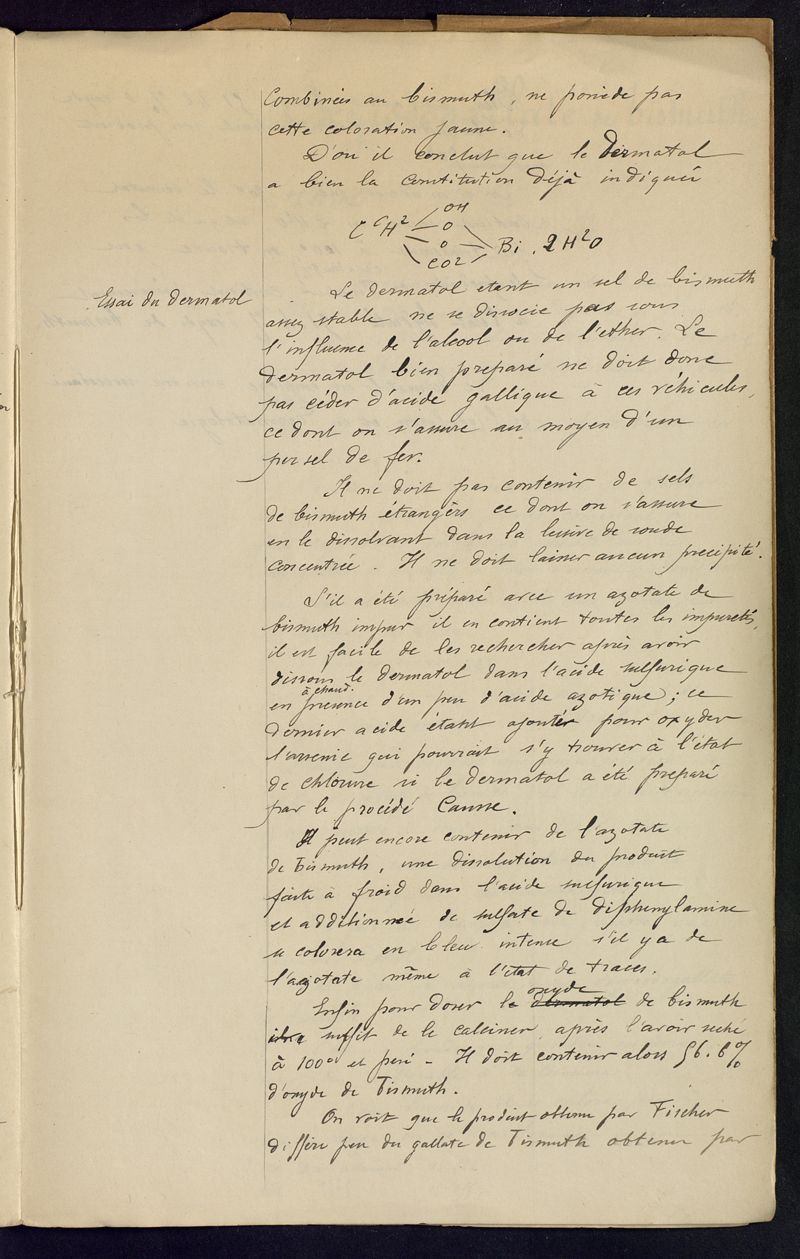 Combinées au bismuth, ne possède pas
cette coloration jaune.
D'où il conclut que le Dermatol
a bien la constitution déjà indiquée
OH
C6H2 O
O Bi. 2H2O
CO2
Essai du Dermatol
Le dermatol etant un sel de bismuth
assez stable ne se dissocie pas sous
l'influence de l'alcool ou de l'ether. Le
dermatol bien preparé ne doit donc
pas céder d'acide gallique à ces véhicules,
ce dont on s'assure au moyen d'un
persel de fer.
Il ne doit pas contenir de sels
de bismuth étrangers ce dont on s'assure
en le dissolvant dans la lessive de soude
concentrée. Il ne doit laisser aucun precipité.
S'il a été préparé avec un azotate de
bismuth impur il en contient toutes les impuretés,
il est facile de les rechercher après avoir
dissous le dermatol dans l'acide sulfurique
à chaud.
en présence d'un peu d'acide azotique; ce
dernier acide étant ajouté pour oxyder
l'arsenic qui pourrait s'y trouver à l'état
de chlorure si le dermatol a été preparé
par le procédé Causse.
Il peut encore contenir de l'azotate
de Bismuth, une dissolution du produit
faite à froid dans l'acide sulfurique
et additionnée de sulfate de diphenylamine
se colorera en bleu intense s'il y a de
l'azotate même à l'état de traces.
oxyde
Enfin pour doser le dermatol de bismuth
il suffit de le calciner, après l'avoir seché
à 100° et pesé - Il doit contenir alors 56.6%
d'oxyde de Bismuth.
On voit que le produit obtenu par Fischer
diffère peu du gallate de Bismuth obtenu par